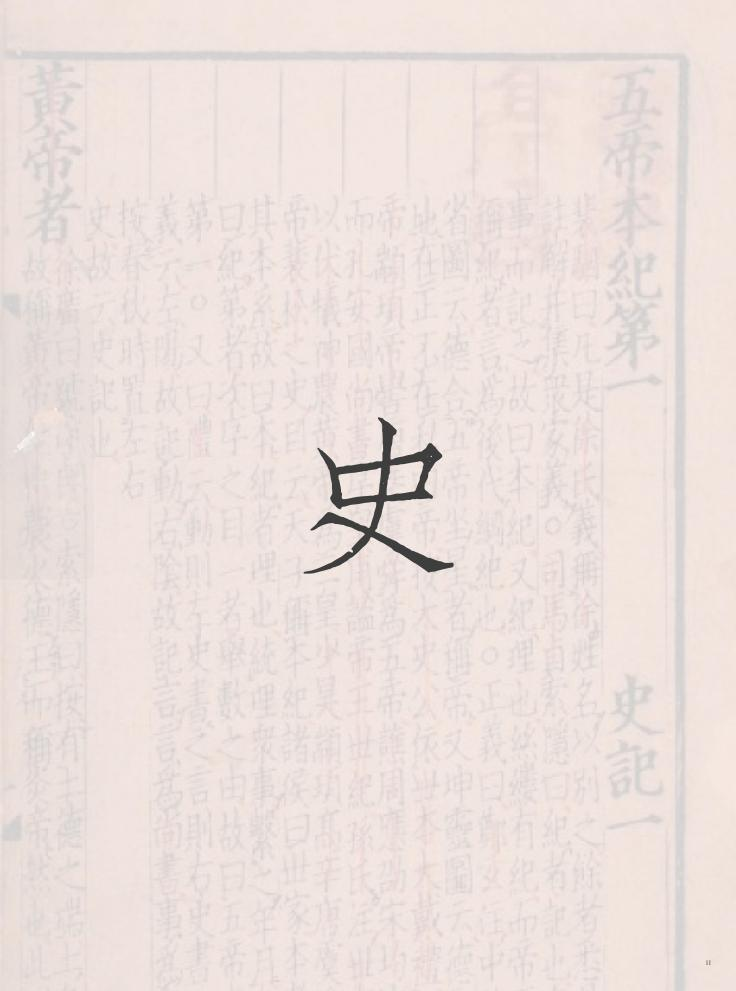 五帝本紀第一 史記一
裴駰曰凡是徐氏義稱徐姓名以別之餘者悉
註解并集衆家義○司馬貞索隱曰紀者記也
事而記之故曰本紀又紀理也絲縷有紀而帝
稱紀者言爲後代綱紀也○正義曰鄭玄注中
省圖云德合五帝坐星者稱帝又坤靈圖云德
地在正不在帝按太史公依世本大戴禮
帝顓頊帝嚳舜爲五帝譙周應劭宋均
而孔安國尚書謐帝王世紀孫氏注世
以伏犧神農帝皇少昊顓頊高辛唐虞
帝裴松之史目云天子稱本紀諸侯曰世家本
其本系故曰本紀者理也統理衆事繫之年月
曰紀第者次序之目一者舉數之由故曰五帝
第一○又曰禮云動則左史書之言則右史書
義云左陽故記動右陰故記言言爲尚書事爲
按春秋時置左右
史故云史記也
黃帝者
徐廣曰號索隱曰按有土德之瑞土
故稱黃帝神農火德王而稱炎帝然也此
史
II